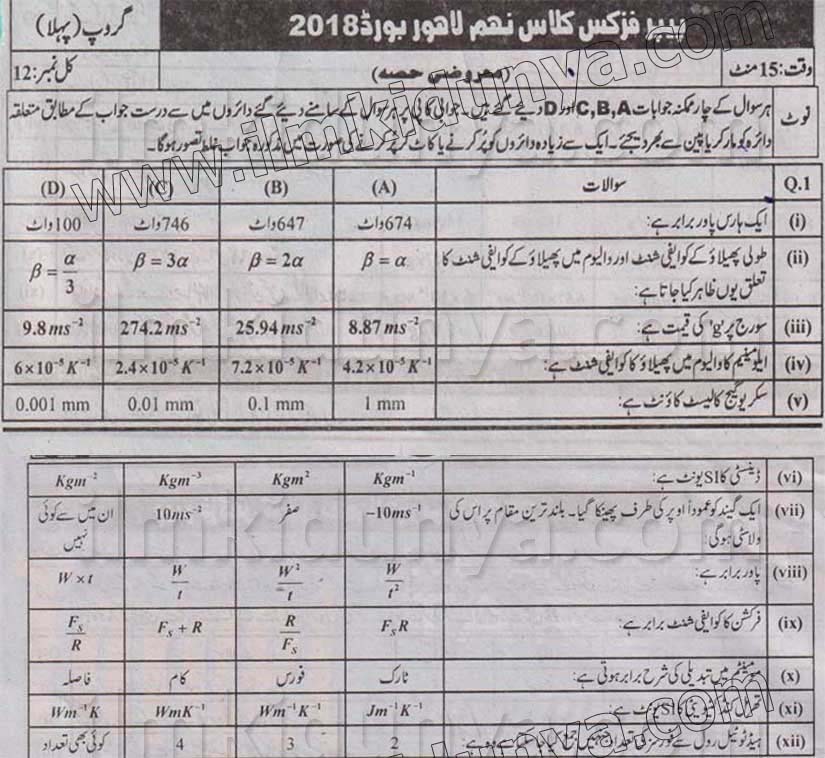 گروپ (پہلا) پیپر فزکس کلاس نہم لاہور بورڈ 2018
وقت: 15 منٹ (معروضی حصہ) کل نمبر: 12
نوٹ ہر سوال کے چار ممکنہ جوابات C,B,A اور D دیئے گئے ہیں۔ جوابی کاپی پر ہر سوال کے سامنے دیئے گئے دائروں میں سے درست جواب کے مطابق متعلقہ
دائرہ کو مارکر یا پین سے بھر دیجئے۔ ایک سے زیادہ دائروں کو پُر کرنے یا کاٹ کر پُر کرنے کی صورت میں مذکورہ جواب غلط تصور ہوگا۔
Q.1 سوالات (A) (B) (C) (D)
(i) ایک ہارس پاور برابر ہے: 674واٹ 647واٹ 746واٹ 100واٹ
(ii) طولی پھیلاؤ کے کوایفی شنٹ اور والیوم میں پھیلاؤ کے کوایفی شنٹ کا β = α β = 2α β = 3α β = α/3
تعلق یوں ظاہر کیا جاتا ہے:
(iii) سورج پر 'g' کی قیمت ہے: 8.87 ms⁻² 25.94 ms⁻² 274.2 ms⁻² 9.8 ms⁻²
(iv) ایلومینیم کا والیوم میں پھیلاؤ کا کوایفی شنٹ ہے: 4.2×10⁻⁵ K⁻¹ 7.2×10⁻⁵ K⁻¹ 2.4×10⁻⁵ K⁻¹ 6×10⁻⁵ K⁻¹
(v) سکریو گیج کا لیسٹ کاؤنٹ ہے: 1 mm 0.1 mm 0.01 mm 0.001 mm
(vi) ڈینسٹی کا SI یونٹ ہے: Kgm⁻¹ Kgm² Kgm⁻³ Kgm⁻²
(vii) ایک گیند کو عموداً اوپر کی طرف پھینکا گیا۔ بلند ترین مقام پر اس کی −10ms⁻¹ صفر 10ms⁻² ان میں سے کوئی
ولاسٹی ہوگی: نہیں
(viii) پاور برابر ہے: W/t² W²/t W/t W × t
(ix) فرکشن کا کوایفی شنٹ برابر ہے: FₛR R/Fₛ Fₛ + R Fₛ/R
(x) مومینٹم میں تبدیلی کی شرح برابر ہوتی ہے: ٹارک فورس کام فاصلہ
(xi) تھرمل کنڈکٹیویٹی کا SI یونٹ ہے: Jm⁻¹K⁻¹ Wm⁻¹K⁻¹ WmK⁻¹ Wm⁻¹K
(xii) ہیڈ ٹو ٹیل رول سے فورسز کی تعداد 2 3 4 کوئی بھی تعداد
www.ilmkidunya.com
ilmkidunya.com
ilmkidunya.com